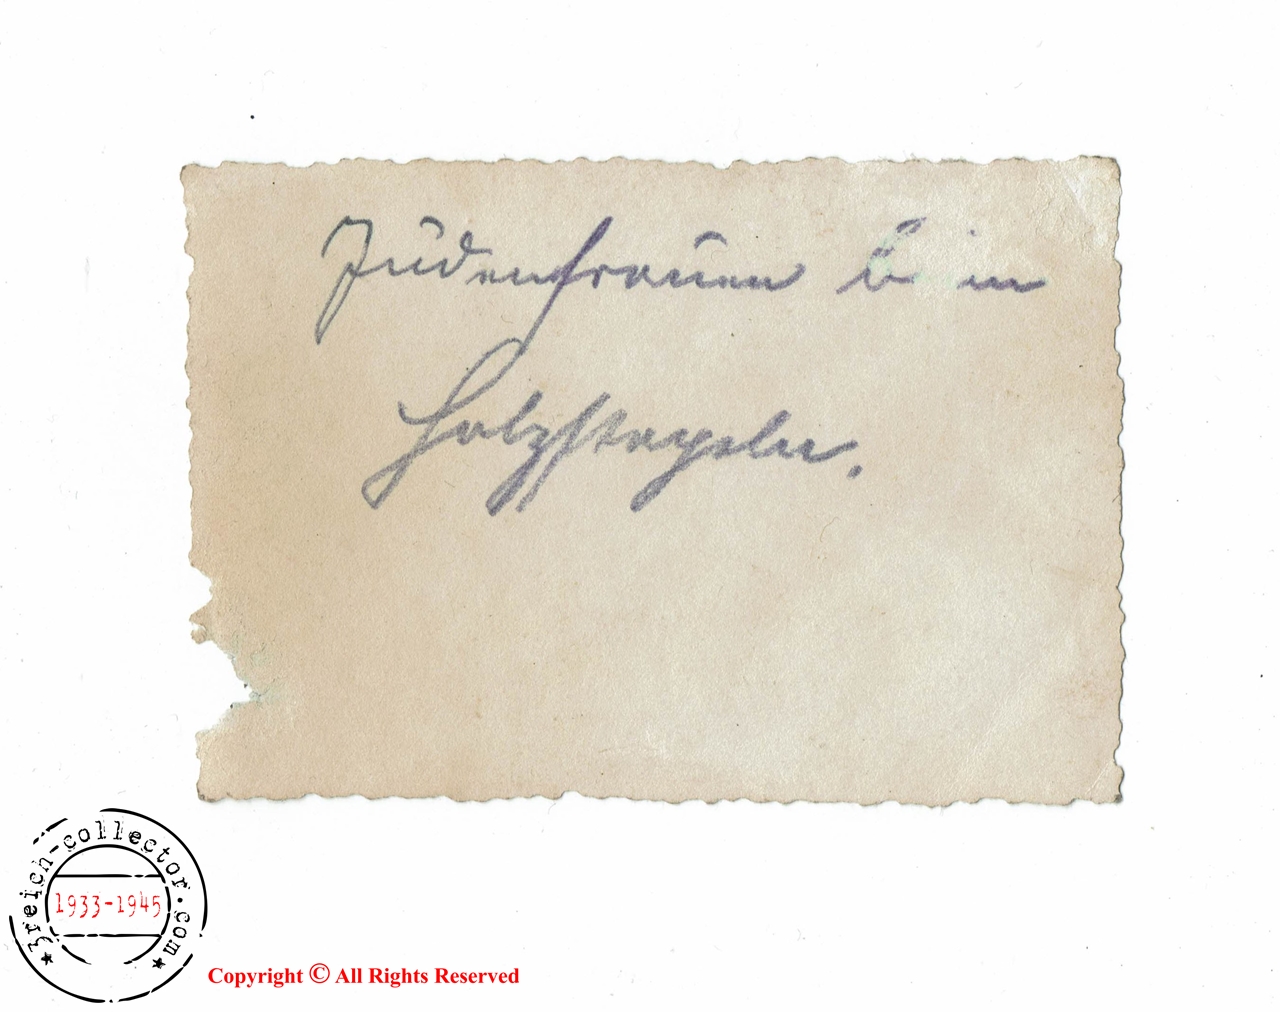 Judenfrauen beim
Holzstapeln.
3reich-collector.com
1933-1945
Copyright © All Rights Reserved